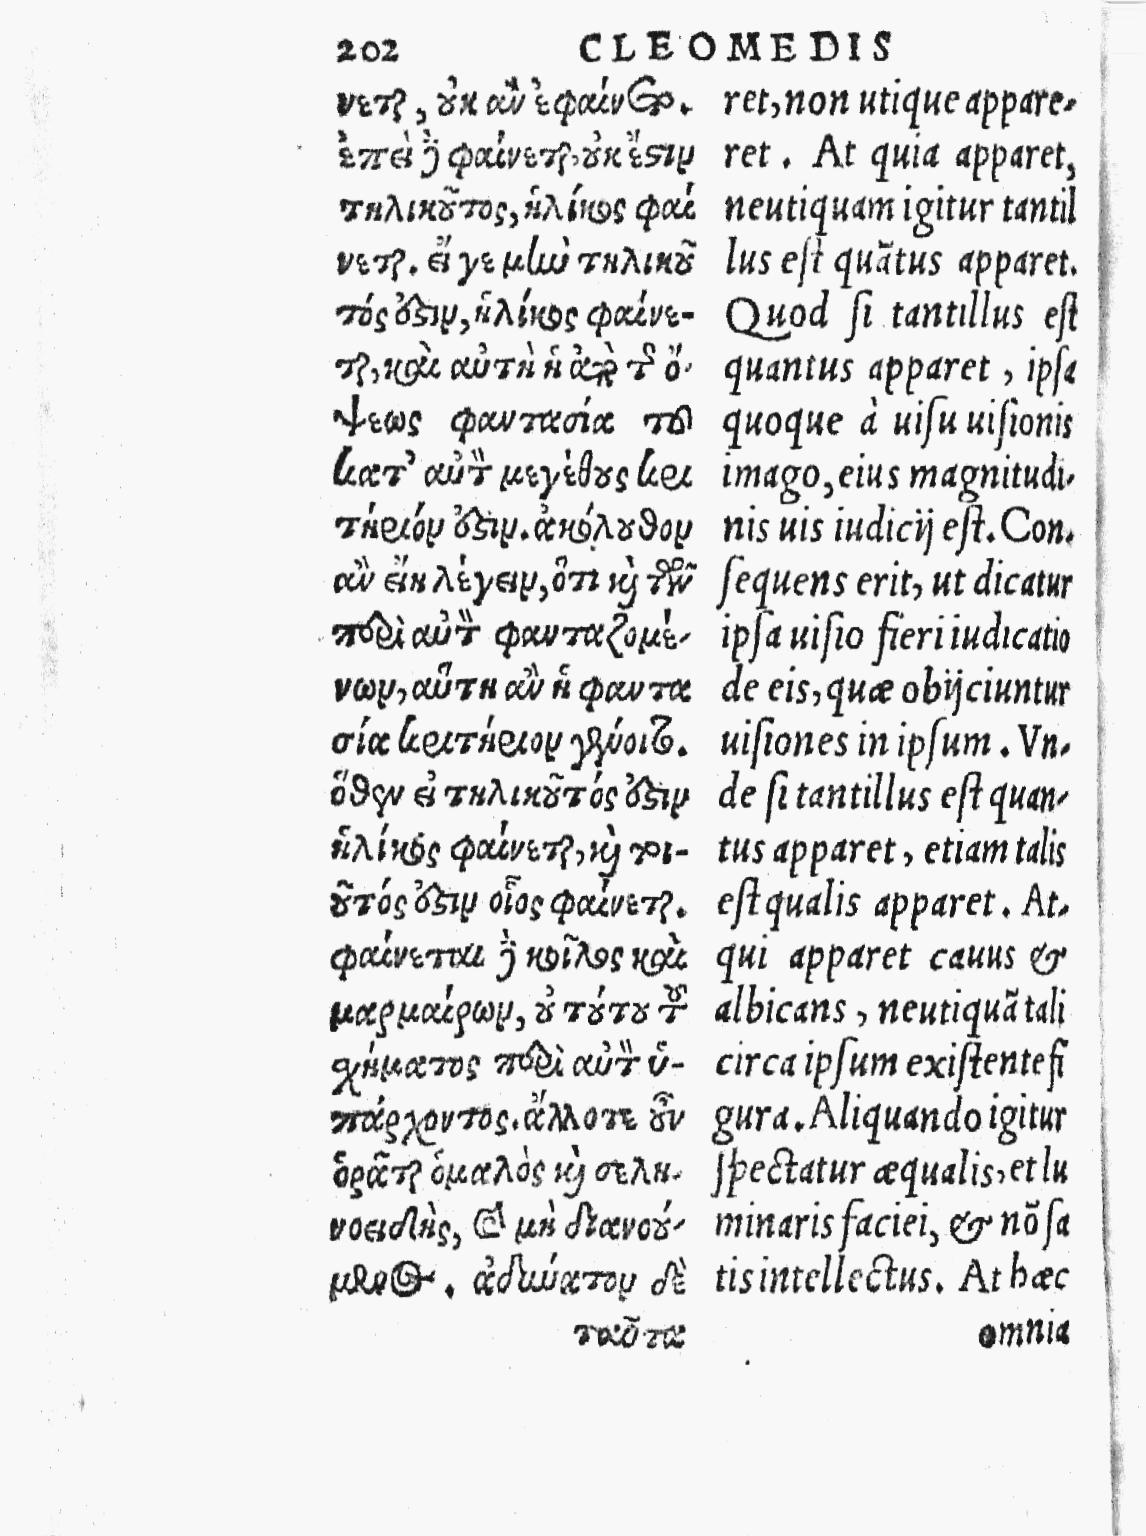 202 CLEOMEDIS
νεται, οὐκ ἂν ἐφαίνετο.
ἐπεὶ δὲ φαίνεται, οὐκ ἔστιν
τηλικοῦτος, ἡλίκος φαί
νεται. εἴ γε μὴν τηλικοῦ
τός ἐστιν, ἡλίκος φαίνε-
ται, καὶ αὐτὴ ἡ ἀπὸ τῆς ὄ-
ψεως φαντασία τοῦ
κατ' αὐτὸν μεγέθους κρι
τήριόν ἐστιν. ἀκόλουθον
ἂν εἴη λέγειν, ὅτι καὶ τῶν
περὶ αὐτὸν φανταζομέ-
νων, αὕτη ἂν ἡ φαντα
σία κριτήριον γένοιτο.
ὅθεν εἰ τηλικοῦτός ἐστιν
ἡλίκος φαίνεται, καὶ τοι-
οῦτός ἐστιν οἷος φαίνεται.
φαίνεται δὲ κοῖλος καὶ
μαρμαίρων, οὐ τούτου τοῦ
σχήματος περὶ αὐτὸν ὑ-
πάρχοντος. ἄλλοτε οὖν
ὁρᾶται ὁμαλὸς καὶ σελη-
νοειδὴς, μὴ διανού-
μενος. ἀδύνατον δὲ
ταῦτα
ret, non utique appare-
ret. At quia apparet,
neutiquam igitur tantil
lus est quãtus apparet.
Quod si tantillus est
quantus apparet, ipsa
quoque à uisu uisionis
imago, eius magnitudi-
nis uis iudicij est. Con-
sequens erit, ut dicatur
ipsa uisio fieri iudicatio
de eis, quæ obijciuntur
uisiones in ipsum. Vn-
de si tantillus est quan-
tus apparet, etiam talis
est qualis apparet. At-
qui apparet cauus &
albicans, neutiquã tali
circa ipsum existente fi
gura. Aliquando igitur
spectatur æqualis, et lu
minaris faciei, & nõ sa
tis intellectus. At hæc
omnia